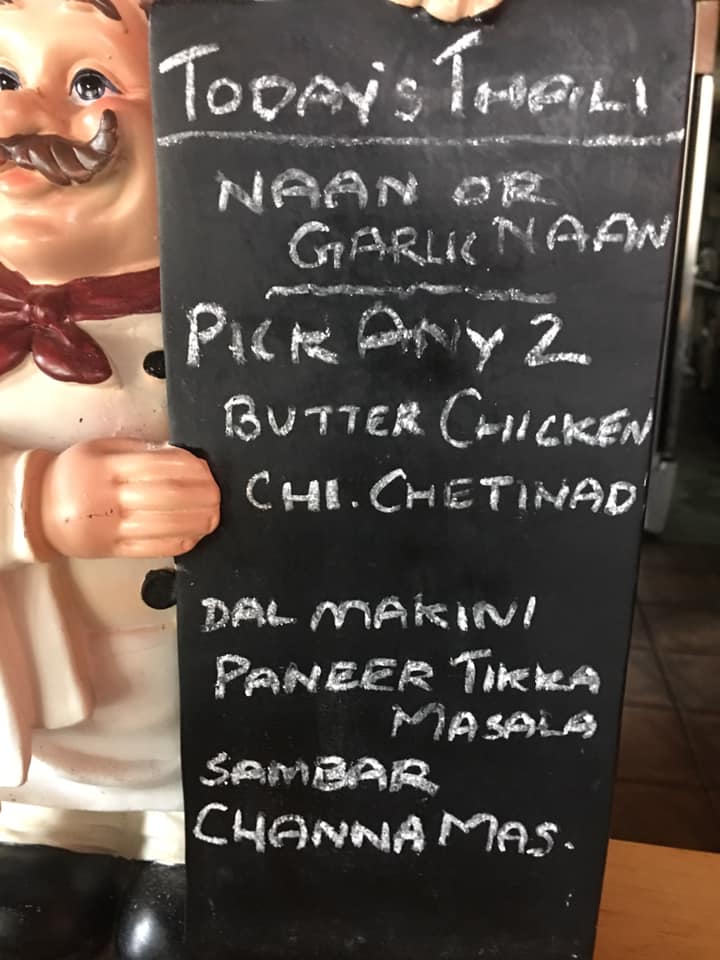 TODAY'S THALI
NAAN OR
GARLIC NAAN
PICK ANY 2
BUTTER CHICKEN
CHI. CHETINAD
DAL MAKINI
PANEER TIKKA
MASALA
SAMBAR
CHANNA MAS.